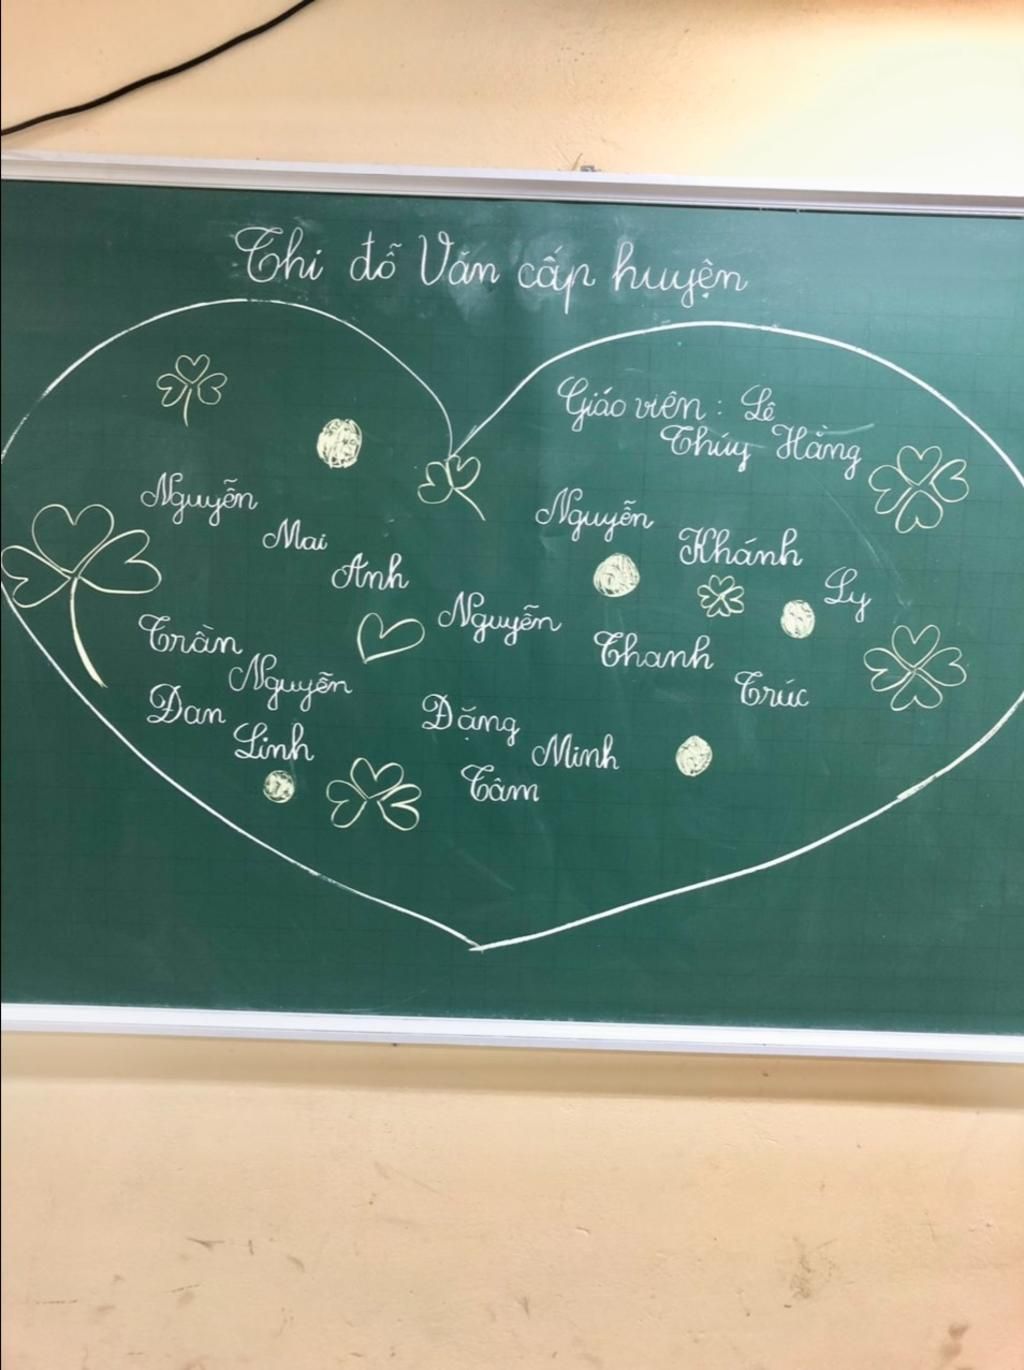 Thi đỗ Văn cấp huyện
Giáo viên : Lê
Thúy Hằng
Nguyễn
Mai
Anh
Nguyễn
Khánh
Ly
Nguyễn
Thanh
Trúc
Trần
Nguyễn
Đan
Linh
Đặng
Minh
Tâm